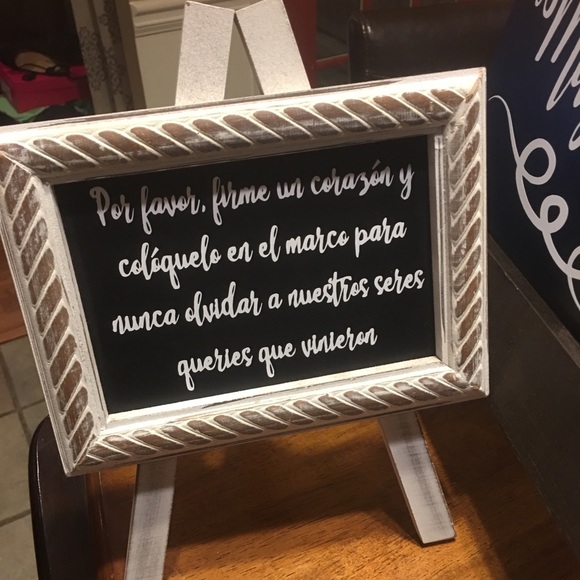 Por favor, firme un corazón y
colóquelo en el marco para
nunca olvidar a nuestros seres
queries que vinieron